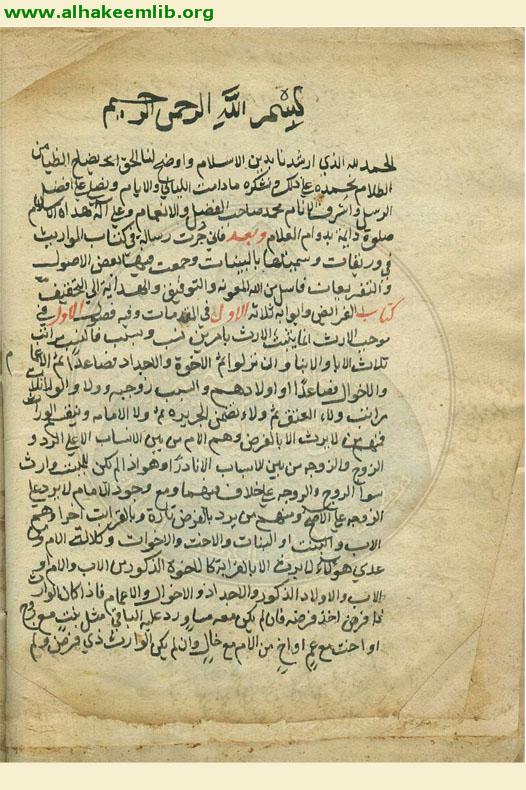 www.alhakeemlib.org
بسم الله الرحمن الرحيم
الحمد لله الذي ارشدنا بدين الاسلام واوضح لنا الحق من
الظلام نحمده على ذلك ونشكره ما دامت الليالي والايام ونصلي على افضل
الرسل واشرف الانام محمد صاحب الفضل والانعام وعلى آله هداة الاسلام
صلوة دايمة بدوام العلام وبعد فان حررت رسالة في كتاب المواريث
في وريقات وسميتها بالبينات وجمعت فيها بعض الاصول
والتفريعات فاسل من الله المعونة والتوفيق والهداية الى التحقيق
كتاب الفرايض وابوابه ثلاثة الاول في المقدمات وفيه فصول الاول في
موجب الارث انما يثبت الارث بامرين نسب وسبب فالنسب مراتب
ثلاث الابا والابنا وان نزلوا ثم الاخوة والاجداد فصاعدا ثم الاعمام
والاخوال فصاعدا او اولادهم والسبب زوجية وولا والولا ثلاث
مراتب ولاء العتق ثم ولاء تضمن الجريرة ثم ولا الامامه وينقسم الوراث
فمنهم من لا يرث الا بالفرض وهم الام من بين الانساب الا على الرد و
الزوج والزوجه من بين الاسباب الا نادرا وهو اذا لم يكن للميت وارث
سوا الزوج والزوجه على خلاف فيهما ومع وجود الامام لا يرد على
الزوجه على الاصح ومنهم من يرث بالفرض تارة وبالقرابة اخرا وهم
الاب والبنت او البنات والاخت والاخوات وكلالة الام ومن
عدى هولاء لا يرث الا بالقرابة كالاخوة الذكور من الاب والام و
الاب والاولاد الذكور والاجداد والاخوال والاعمام فاذا كان الوارث
ذا فرض اخذ فرضه فان لم يكن معه مساو رد عليه الباقي مثل بنت مع اخ
او اخت مع عم او اخ من الام مع خال وان لم يكن الوارث ذي فرض ولم